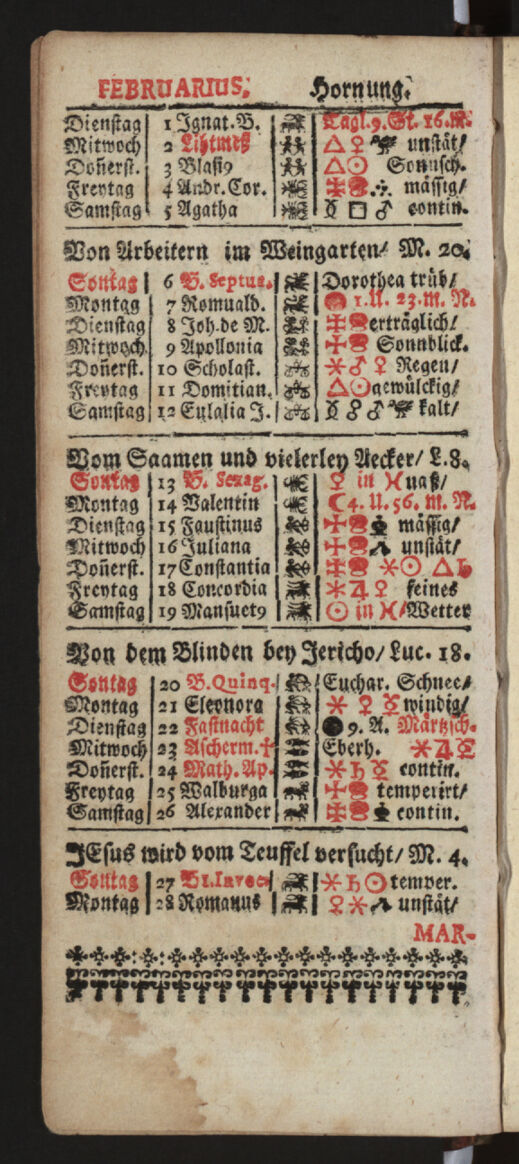 FEBRUARIUS. Hornung.
Dienstag 1 Ignat. B. Tagl. 9. St. 16. M.
Mitwoch 2 Lihtmeß △ ♀ unstät/
Doñerst. 3 Blasi9 △☉ Sonnsch.
Freytag 4 Andr. Cor. mässig/
Samstag 5 Agatha ☿ □ ♂ contin.
Von Arbeitern im Weingarten/ M. 20.
Sontag 6 B. Septua. Dorothea trüb/
Montag 7 Romuald. 1. U. 23. m. N.
Dienstag 8 Joh. de M. erträglich/
Mitwoch 9 Apollonia Sonnblick.
Doñerst. 10 Scholast. ⚹ ♂ ♀ Regen/
Freytag 11 Domitian. △☉ gewülckig/
Samstag 12 Eulalia J. ☿ ☍ ♂ kalt/
Vom Saamen und vielerley Aecker/ L. 8.
Sontag 13 B. Sexag. ♀ in ♓ naß/
Montag 14 Valentin ☾ 4. U. 56. m. N.
Dienstag 15 Faustinus mässig/
Mitwoch 16 Juliana unstät/
Doñerst. 17 Constantia ⚹☉ △♄
Freytag 18 Concordia ⚹ ♃ ♀ feines
Samstag 19 Mansuet9 ☉ in ♓/Wetter
Von dem Blinden bey Jericho/ Luc. 18.
Sontag 20 B. Quinq. Euchar. Schnee/
Montag 21 Eleonora ⚹ ♀ ☿ windig/
Dienstag 22 Fastnacht ● 9. A. Märtzsch.
Mitwoch 23 Ascherm. ✝ Eberh. ⚹♃☿
Doñerst. 24 Math. Ap. ⚹♄☿ contin.
Freytag 25 Walburga temperirt/
Samstag 26 Alexander contin.
JEsus wird vom Teuffel versucht/ M. 4.
Sontag 27 B1. Invoc. ⚹♄☉ temper.
Montag 28 Romanus ♀⚹ unstät/
MAR-